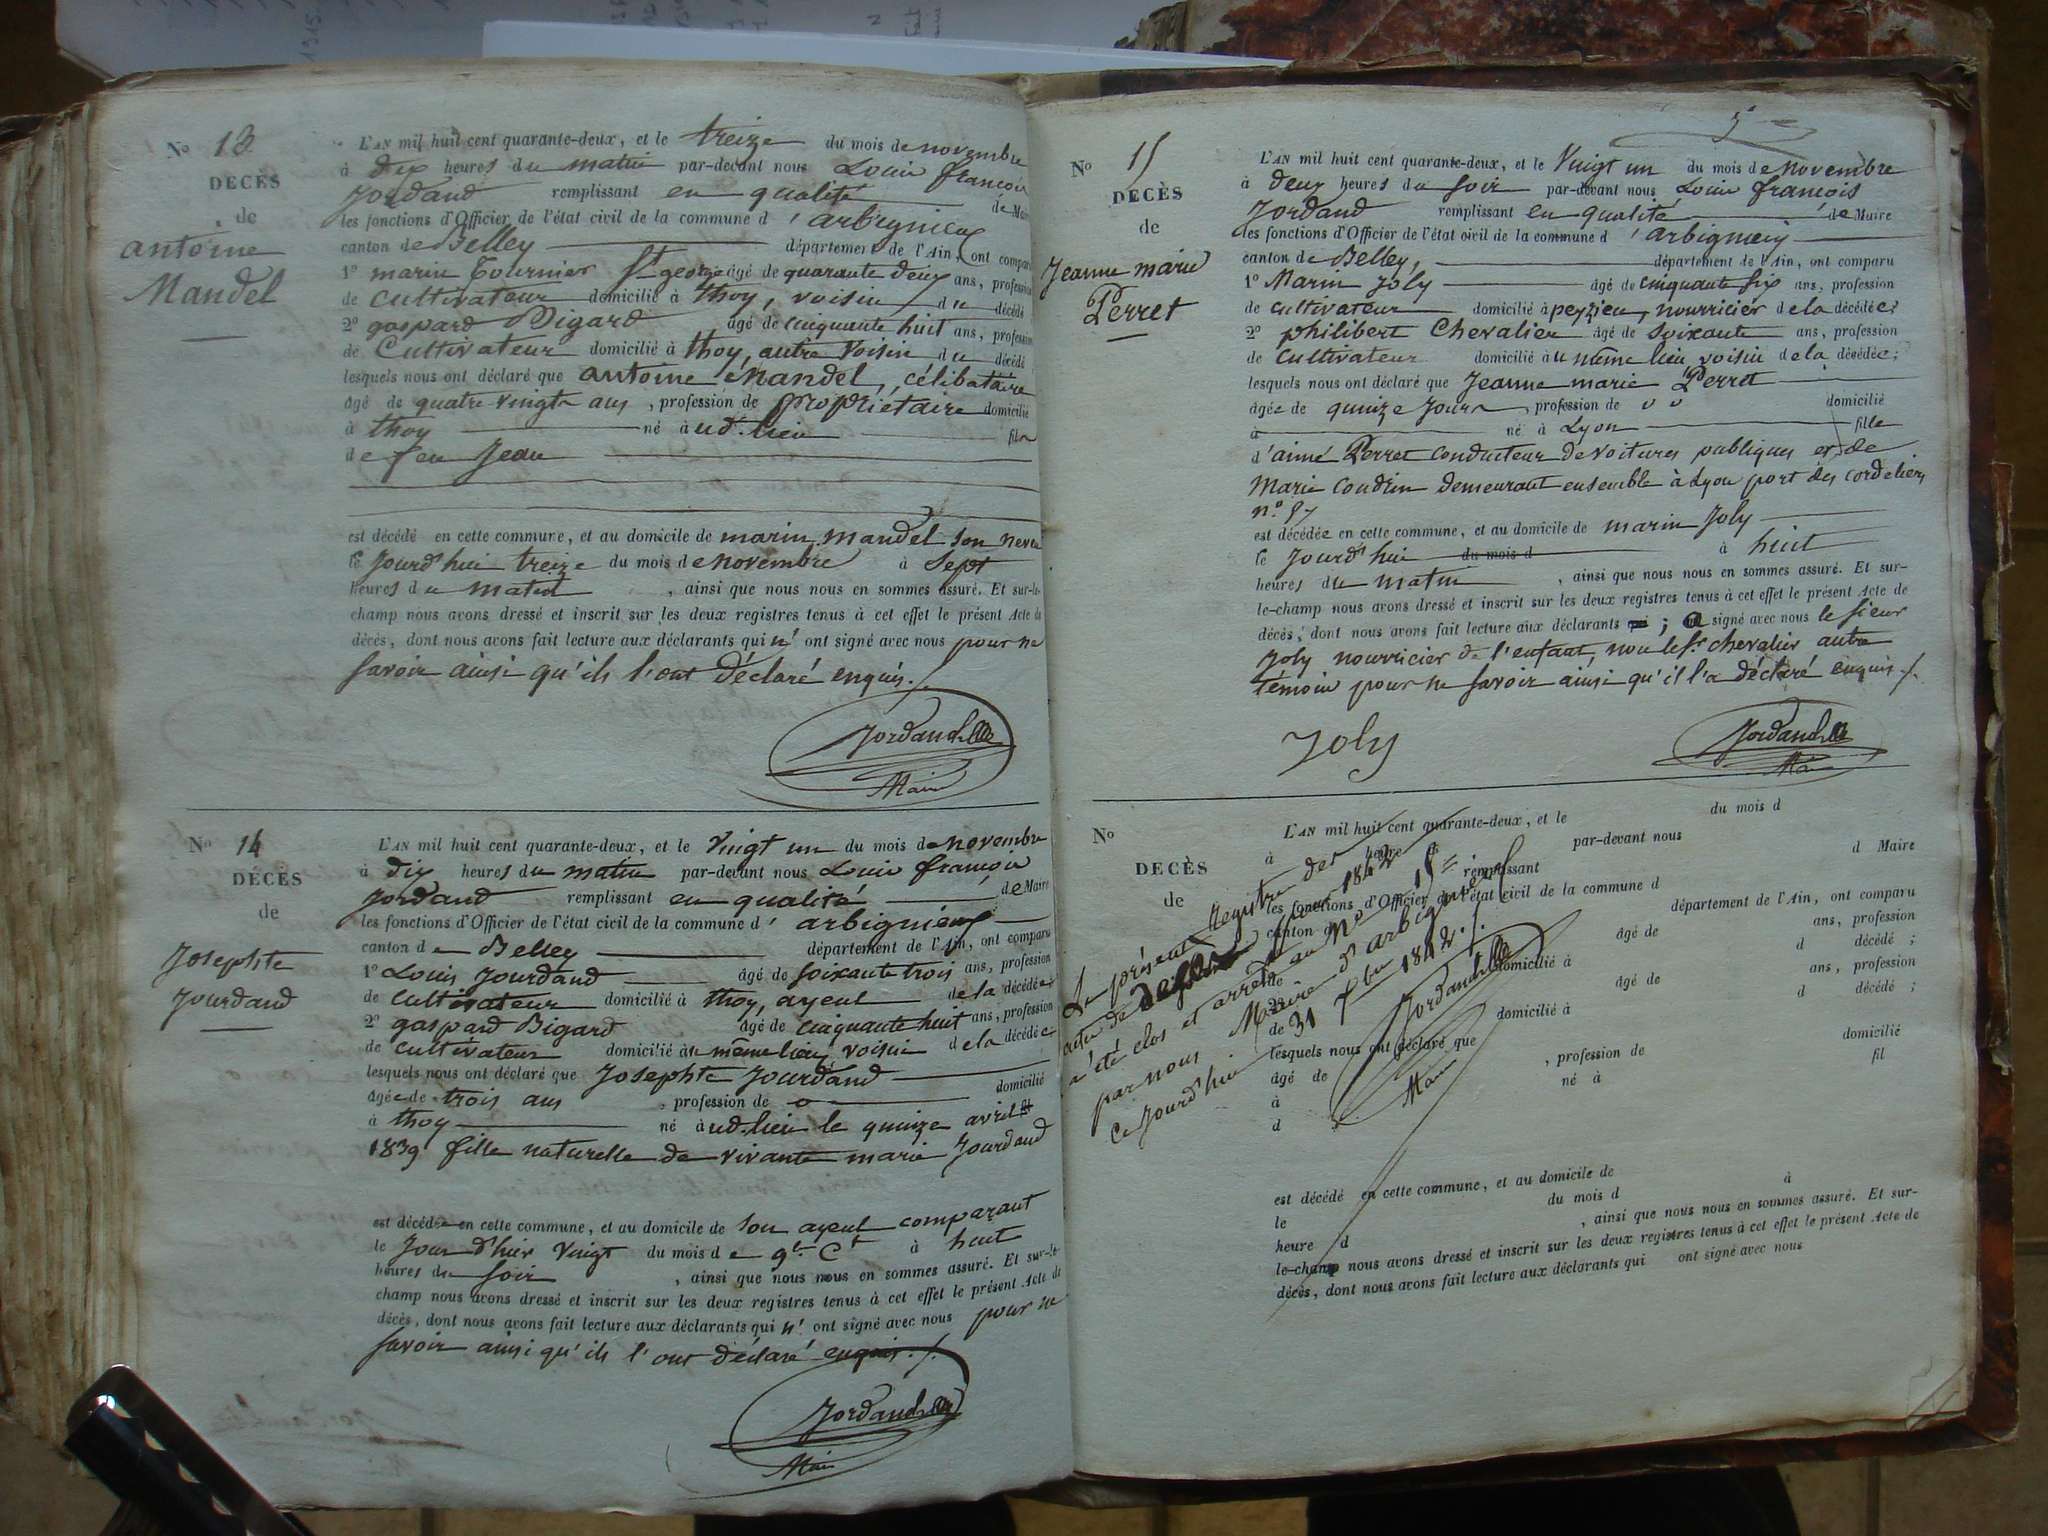 N.º 13
DÉCÈS
de
antoine
Mandel
L'AN mil huit cent quarante-deux, et le treize du mois de novembre
à dix heures du matin par-devant nous Louis françois
Jordand remplissant en qualité de Maire
les fonctions d'Officier de l'état civil de la commune d'arbignieux
canton de Belley département de l'Ain, ont comparu
1º marin Tournier St george âgé de quarante deux ans, profession
de cultivateur domicilié à thoy, voisin du décédé
2º gaspard Bigard âgé de cinquante huit ans, profession
de Cultivateur domicilié à thoy, autre voisin du décédé
lesquels nous ont déclaré que antoine Mandel, célibataire
âgé de quatre vingts ans, profession de propriétaire domicilié
à thoy né à ud. lieu fils
de feu Jean
est décédé en cette commune, et au domicile de marin Mandel son neveu
le jourd'hui treize du mois de novembre à sept
heures du matin, ainsi que nous nous en sommes assuré. Et sur-le-
champ nous avons dressé et inscrit sur les deux registres tenus à cet effet le présent Acte de
décès, dont nous avons fait lecture aux déclarants qui n' ont signé avec nous pour ne
savoir ainsi qu'ils l'ont déclaré enquis./.
Jordand
Maire
N.º 14
DÉCÈS
de
Josephte
Jourdand
L'AN mil huit cent quarante-deux, et le vingt un du mois de novembre
à dix heures du matin par-devant nous Louis françois
Jordand remplissant en qualité de Maire
les fonctions d'Officier de l'état civil de la commune d'arbignieux
canton de Belley département de l'Ain, ont comparu
1º Louis Jourdand âgé de soixante trois ans, profession
de cultivateur domicilié à thoy, ayeul de la décédée
2º gaspard Bigard âgé de cinquante huit ans, profession
de cultivateur domicilié au même lieu, voisin de la décédée
lesquels nous ont déclaré que Josephte Jourdand
âgée de trois ans, profession de o domicilié
à thoy né à ud. lieu le quinze avril
1839 fille naturelle de vivante marie Jourdand
est décédée en cette commune, et au domicile de son ayeul comparant
le jour d'hier vingt du mois de 9bre Ct à huit
heures du soir, ainsi que nous nous en sommes assuré. Et sur-le-
champ nous avons dressé et inscrit sur les deux registres tenus à cet effet le présent Acte de
décès, dont nous avons fait lecture aux déclarants qui n' ont signé avec nous pour ne
savoir ainsi qu'ils l'ont déclaré enquis./.
Jordand
Maire
5
N.º 15
DÉCÈS
de
Jeanne marie
Perret
L'AN mil huit cent quarante-deux, et le Vingt un du mois de novembre
à deux heures du soir par-devant nous Louis françois
Jordand remplissant en qualité de Maire
les fonctions d'Officier de l'état civil de la commune d'arbignieux
canton de Belley, département de l'Ain, ont comparu
1º Marin Joly âgé de cinquante six ans, profession
de cultivateur domicilié à peyzieu, nourricier de la décédée;
2º philibert Chevalier âgé de soixante ans, profession
de cultivateur domicilié au même lieu, voisin de la décédée;
lesquels nous ont déclaré que Jeanne marie Perret
âgée de quinze jours, profession de domicilié
à né à Lyon fille
d'aimé Perret conducteur de voitures publiques et de
Marie Coudrin demeurant ensemble à Lyon port des cordeliers
n.º 57
est décédée en cette commune, et au domicile de marin Joly
le jourd'hui du mois d à huit
heures du matin, ainsi que nous nous en sommes assuré. Et sur-
le-champ nous avons dressé et inscrit sur les deux registres tenus à cet effet le présent Acte de
décès, dont nous avons fait lecture aux déclarants qui; a signé avec nous le sieur
Joly nourricier de l'enfant, non le Sr. chevalier autre
témoin pour ne savoir ainsi qu'il l'a déclaré enquis./.
Joly
Jordand
Maire
N.º
DÉCÈS
de
L'AN mil huit cent quarante-deux, et le du mois d
à heure d par-devant nous
remplissant d Maire
les fonctions d'Officier de l'état civil de la commune d
canton d département de l'Ain, ont comparu
âgé de ans, profession
de domicilié à d décédé;
âgé de ans, profession
de domicilié à d décédé;
lesquels nous ont déclaré que
âgé de, profession de domicilié
à né à fil
d
Le présent Registre des
actes de décès pour 1842
a été clos et arrêté au No 15
par nous Maire d'arbignieux
ce jourd'hui 31 Xbre 1842./.
Jordand
Maire
est décédé en cette commune, et au domicile de
le du mois d à
heure d, ainsi que nous nous en sommes assuré. Et sur-
le-champ nous avons dressé et inscrit sur les deux registres tenus à cet effet le présent Acte de
décès, dont nous avons fait lecture aux déclarants qui ont signé avec nous